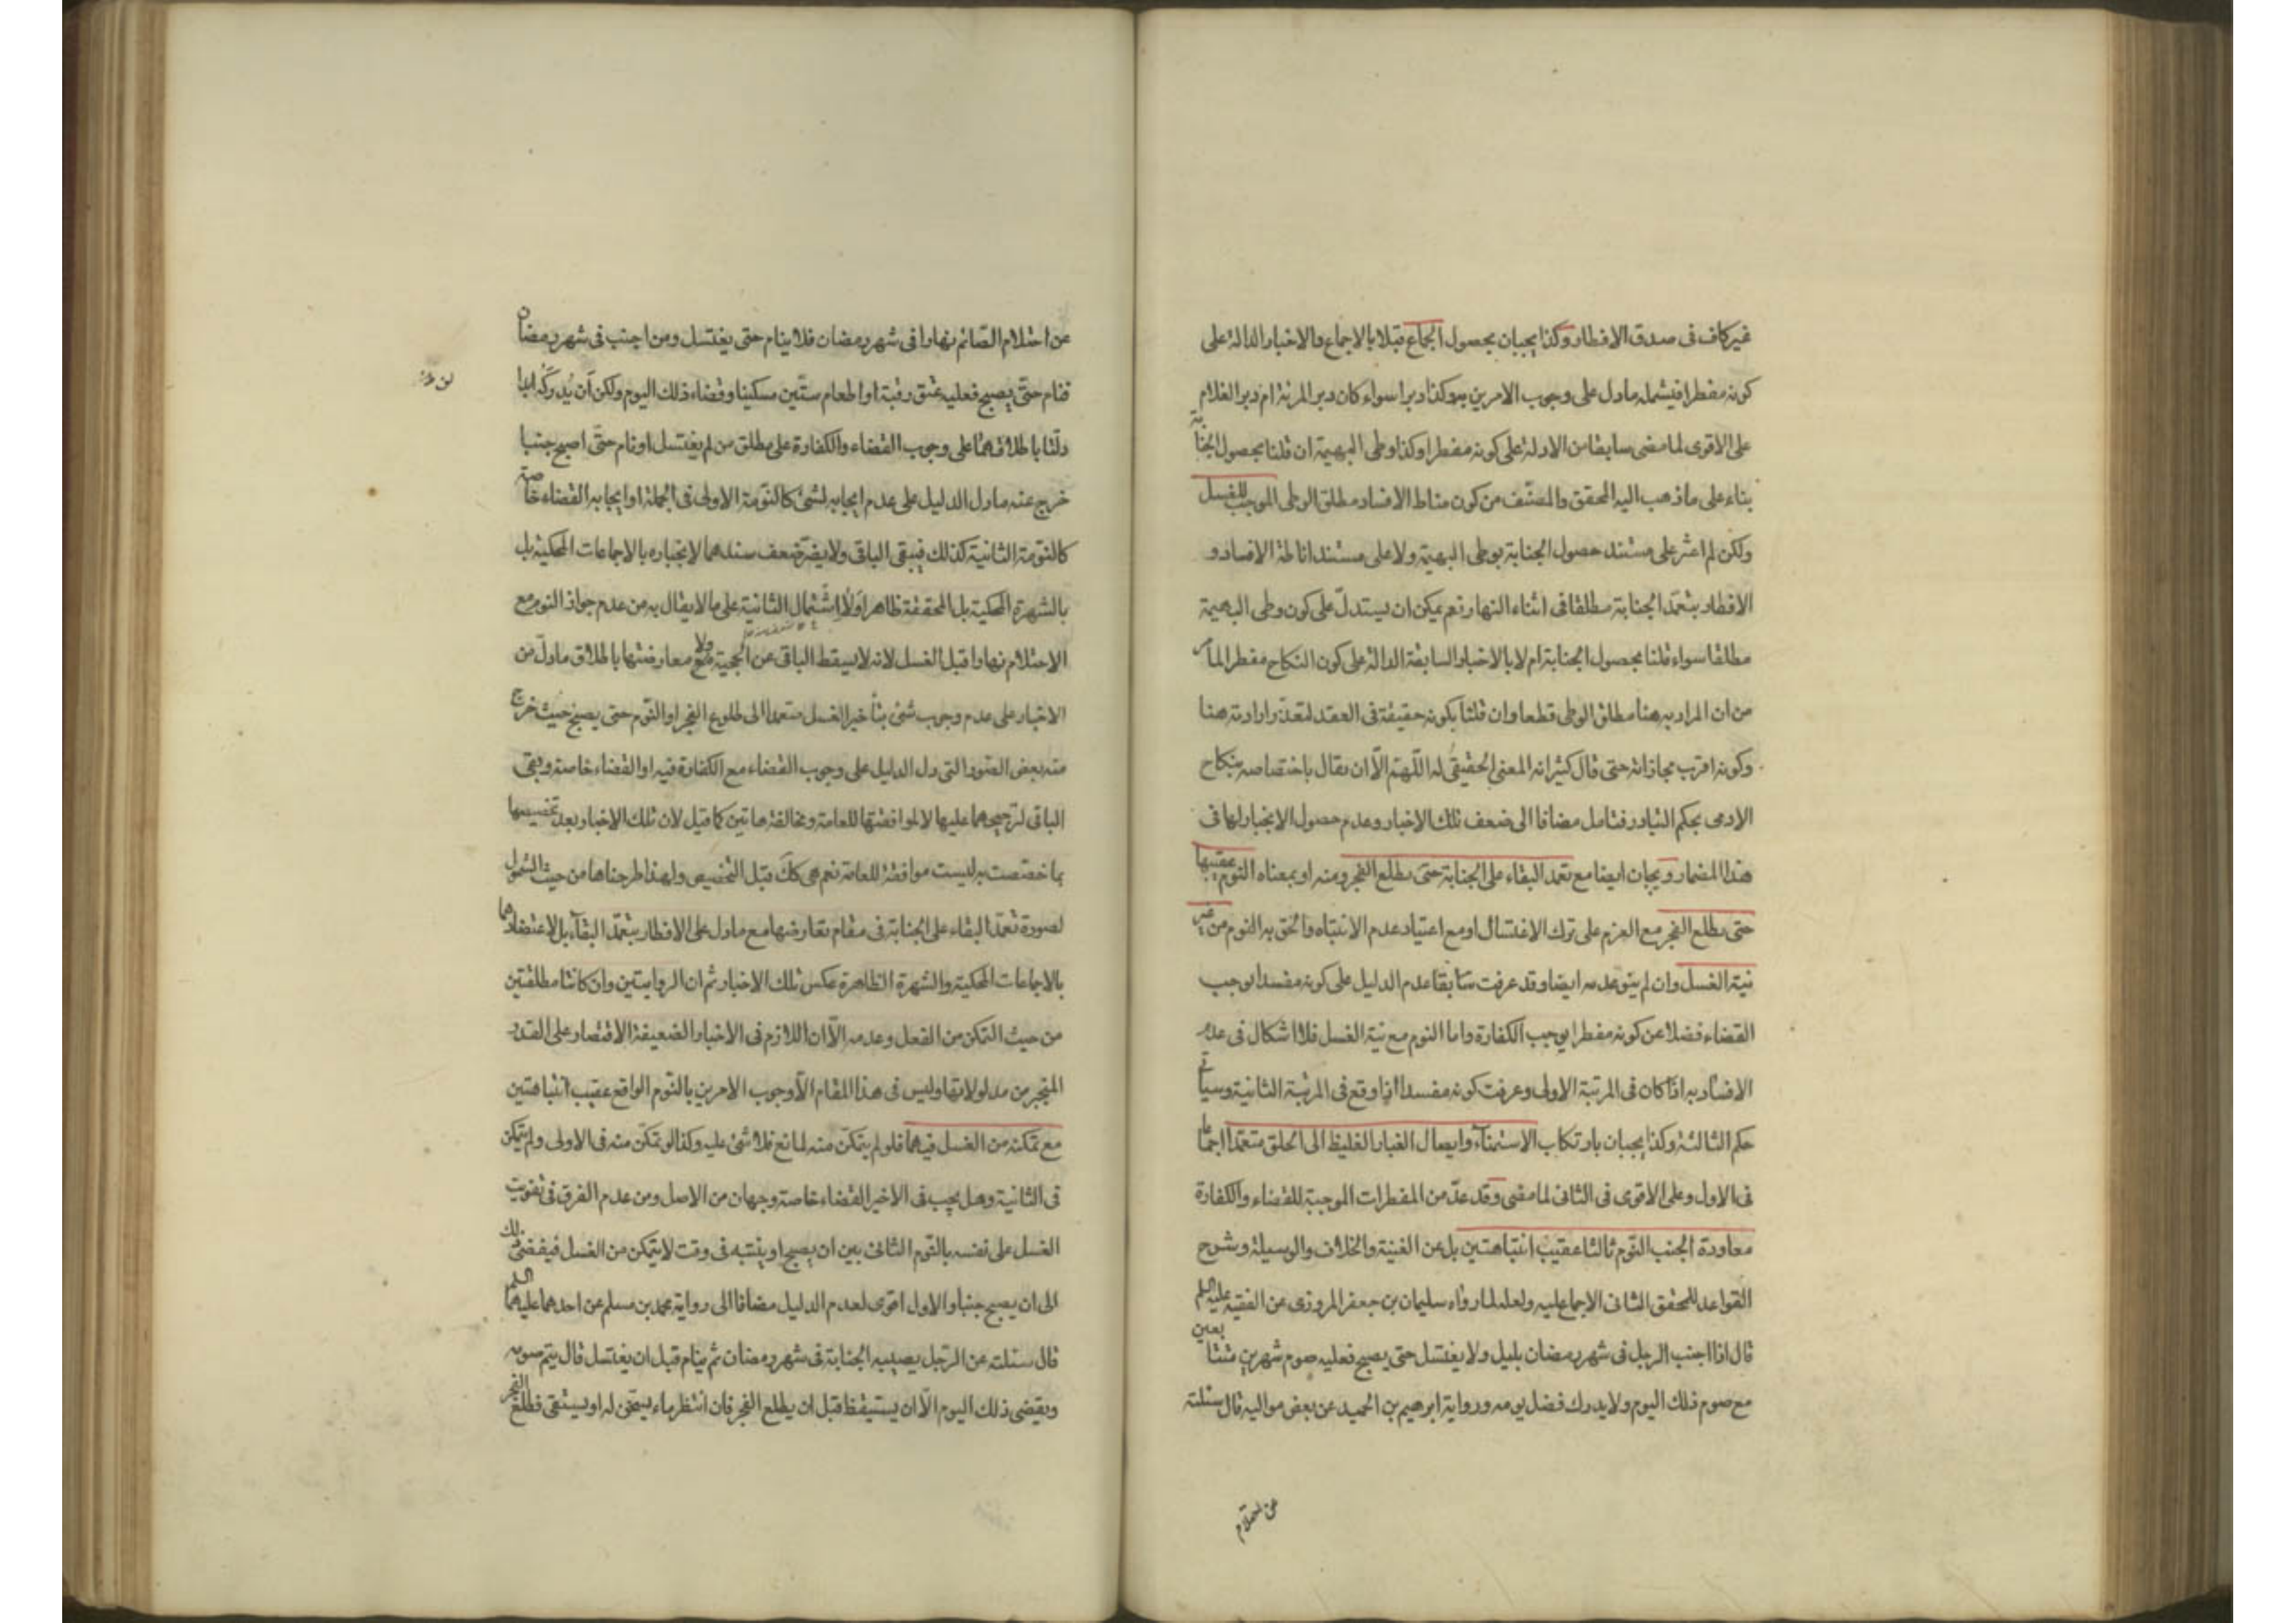 غير كاف فى صدق الافطار وكذا يجبان بحصول الجماع قبلا بالاجماع والاخبار الدالة على
كونه مفطرا فيشمله ما دل على وجوب الامرين به وكذا دبرا سواء كان دبر المرئة ام دبر الغلام
على الاقوى لما مضى سابقا من الادلة على كونه مفطرا وكذا وطى البهيمة ان قلنا بحصول الجنابة
بناء على ما ذهب اليه المحقق والمصنف من كون مناط الافساد مطلق الوطى الموجب للغسل
ولكن لم اعثر على مستند حصول الجنابة بوطى البهيمة ولا على مستند اناطة الافساد و
الافطار بتعمد الجنابة مطلقا فى اثناء النهار نعم يمكن ان يستدل على كون وطى البهيمة
مطلقا سواء قلنا بحصول الجنابة ام لا بالاخبار السابقة الدالة على كون النكاح مفطرا لما مر
من ان المراد به هنا مطلق الوطى قطعا وان قلنا بكونه حقيقة فى العقد لتعذر ارادته هنا
وكونه اقرب مجازاته حتى قال كثير انه المعنى الحقيقى له اللّهم الّا ان يقال باختصاصه بنكاح
الادمى بحكم التبادر فتامل مضافا الى ضعف تلك الاخبار وعدم حصول الانجبار لها فى
هذا المضمار ويجبان ايضا مع تعمد البقاء على الجنابة حتى يطلع الفجر ومنه او بمعناه النوم عقيبها
حتى يطلع الفجر مع العزم على ترك الاغتسال او مع اعتياد عدم الانتباه والحق به النوم من غير
نية الغسل وان لم ينو عدمه ايضا وقد عرفت سابقا عدم الدليل على كونه مفسدا يوجب
القضاء فضلا عن كونه مفطرا يوجب الكفارة واما النوم مع نية الغسل فلا اشكال فى عدم
الافساد به اذا كان فى المرتبة الاولى وعرفت كونه مفسدا اذا وقع فى المرتبة الثانية وسياتى
حكم الثالثة وكذا يجبان بارتكاب الاستمناء وايصال الغبار الغليظ الى الحلق متعمدا اجماعا
فى الاول وعلى الاقوى فى الثانى لما مضى وقد عدّ من المفطرات الموجبة للقضاء والكفارة
معاودة الجنب النوم ثالثا عقيب انتباهتين بل عن الغنية والخلاف والوسيلة وشرح
القواعد للمحقق الثانى الاجماع عليه ولعله لما رواه سليمان بن جعفر المروزى عن الفقيه عليه السلم
قال اذا اجنب الرجل فى شهر رمضان بليل ولا يغتسل حتى يصبح فعليه صوم شهرين متتابعين
مع صوم ذلك اليوم ولا يدرك فضل يومه ورواية ابرهيم بن الحميد عن بعض مواليه قال سئلته
عن احتلام
عن احتلام الصّائم نهارا فى شهر رمضان فلا ينام حتى يغتسل ومن اجنب فى شهر رمضان
فنام حتّى يصبح فعليه عتق رقبة او اطعام ستّين مسكينا وقضاء ذلك اليوم ولكن ان يدركه ابدا
دلّتا باطلاقهما على وجوب القضاء والكفارة على مطلق من لم يغتسل او نام حتّى اصبح جنبا
خرج عنه ما دل الدليل على عدم ايجابه لشئ كالنّومة الاولى فى الجملة او ايجابه القضاء خاصة
كالنّومة الثانية كذلك فيبقى الباقى ولا يضرّ ضعف سندهما لانجباره بالاجماعات المحكية بل
بالشهرة المحكية بل المحققة ظاهرا ولا اشتمال الثانية على ما لا يقال به من عدم جواز النوم مع
الاحتلام نهارا قبل الغسل لانه لا يسقط الباقى عن الحجية ولا معارضتها باطلاق ما دلّ من
الاخبار على عدم وجوب شئ بتأخير الغسل متعمدا الى طلوع الفجر او النّوم حتى يصبح حيث خرج
منه بعض الصّور التى دل الدليل على وجوب القضاء مع الكفارة فيه او القضاء خاصة وبقى
الباقى لترجيحهما عليها لا لموافقتها للعامة ومخالفة هاتين كما قيل لان تلك الاخبار بعد تخصيصها
بما خصّصت به ليست موافقة للعامّة نعم هى كك قبل التخصيص ولهذا طرحناها من حيث الشمول
لصورة تعمّد البقاء على الجنابة فى مقام تعارضها مع ما دل على الافطار بتعمّد البقاء بل لاعتضادهما
بالاجماعات المحكية والشهرة الظاهرة عكس تلك الاخبار ثم ان الروايتين وان كانتا مطلقتين
من حيث التمكن من الفعل وعدمه الّا ان اللازم فى الاخبار الضعيفة الاقتصار على القدر
المنجبر من مدلولاتها وليس فى هذا المقام الّا وجوب الامرين بالنّوم الواقع عقيب انتباهتين
مع تمكنه من الغسل فيهما فلو لم يتمكّن منه لمانع فلا شئ عليه وكذا لو تمكّن منه فى الاولى ولم يتمكن
فى الثانية وهل يجب فى الاخير القضاء خاصة وجهان من الاصل ومن عدم الفرق فى تفويت
الغسل على نفسه بالنّوم الثانى بين ان يصبح او ينتبه فى وقت لا يتمكن من الغسل فيفضى ذلك
الى ان يصبح جنبا والاول اقوى لعدم الدليل مضافا الى رواية محمد بن مسلم عن احدهما عليهما السلم
قال سئلته عن الرّجل يصيبه الجنابة فى شهر رمضان ثم ينام قبل ان يغتسل قال يتم صومه
ويقضى ذلك اليوم الّا ان يستيقظ قبل ان يطلع الفجر فان انتظر ماء يسخّن له او يستقى فطلع الفجر